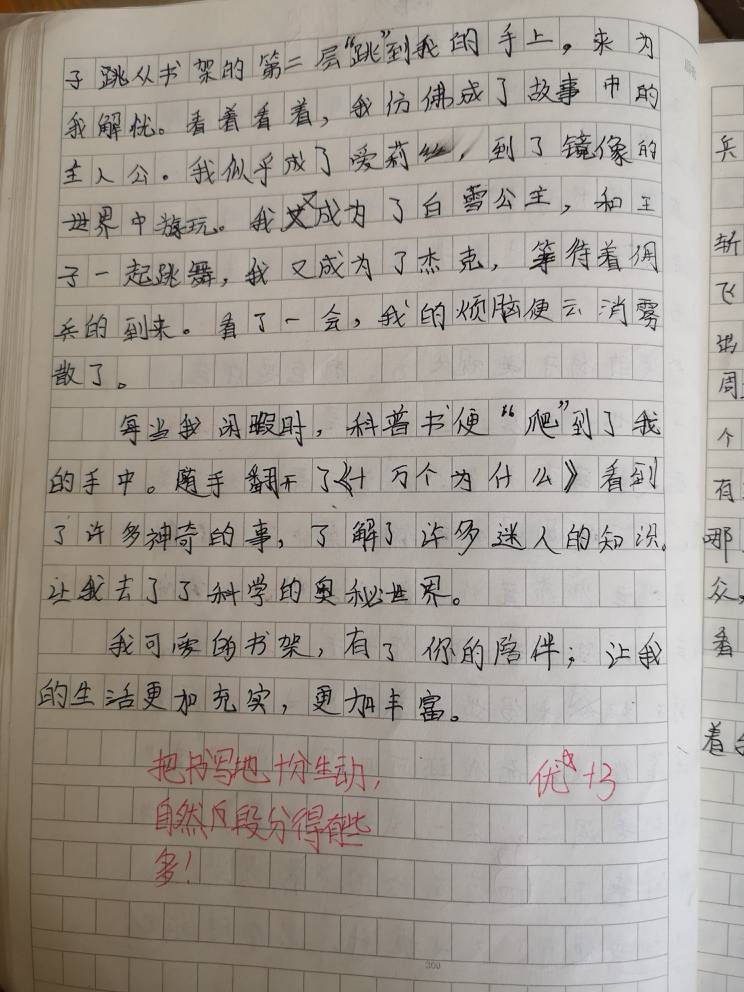 子跳从书架的第二层“跳”到我的手上，来为
我解忧。看着看着，我仿佛成了故事中的
主人公。我似乎成了爱莉丝，到了镜像的
世界中游玩。我又成为了白雪公主，和王
子一起跳舞，我又成为了杰克，等待着佣
兵的到来。看了一会，我的烦脑便云消雾
散了。
每当我闲暇时，科普书便“爬”到了我
的手中。随手翻开了《十万个为什么》看到
了许多神奇的事，了解了许多迷人的知识。
让我去了了科学的奥秘世界。
我可爱的书架，有了你的陪伴；让我
的生活更加充实，更加丰富。
把书写地十分生动，
自然段分得有些
多！
优☆+3
309
兵
斩
飞
周
个
有
哪
众，
看
着